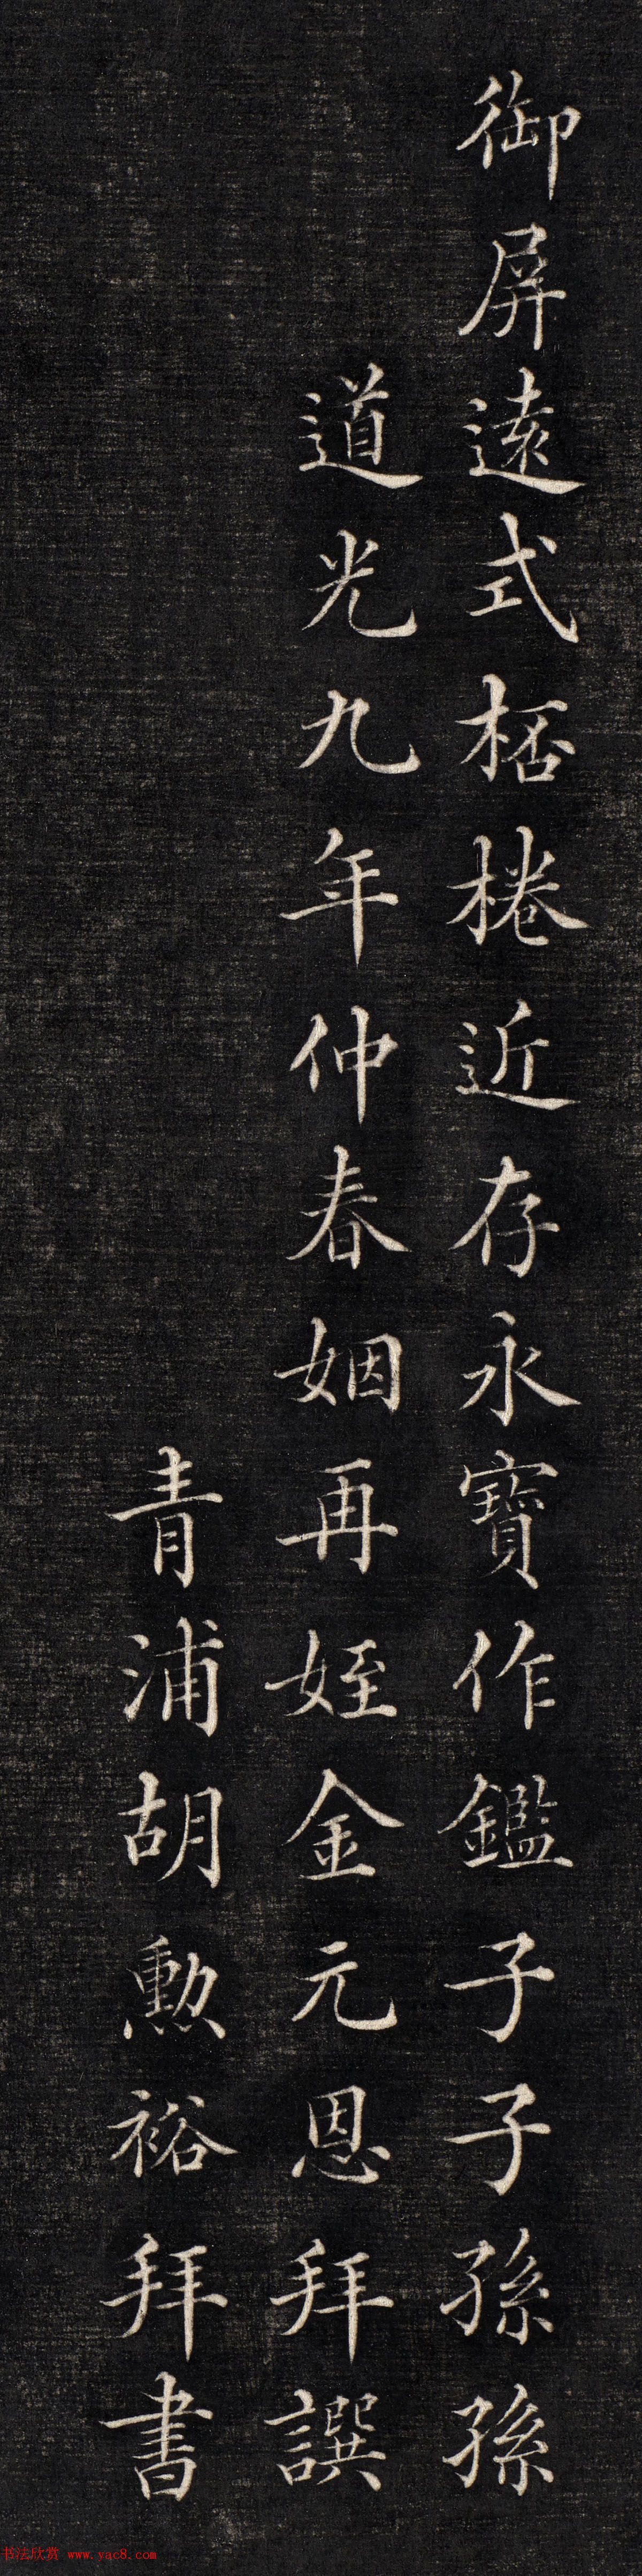 御屏遠式桮棬近存永寶作鑑子子孫孫
道光九年仲春姻再姪金元恩拜譔
青浦胡勲裕拜書
书法欣赏 www.yac8.com